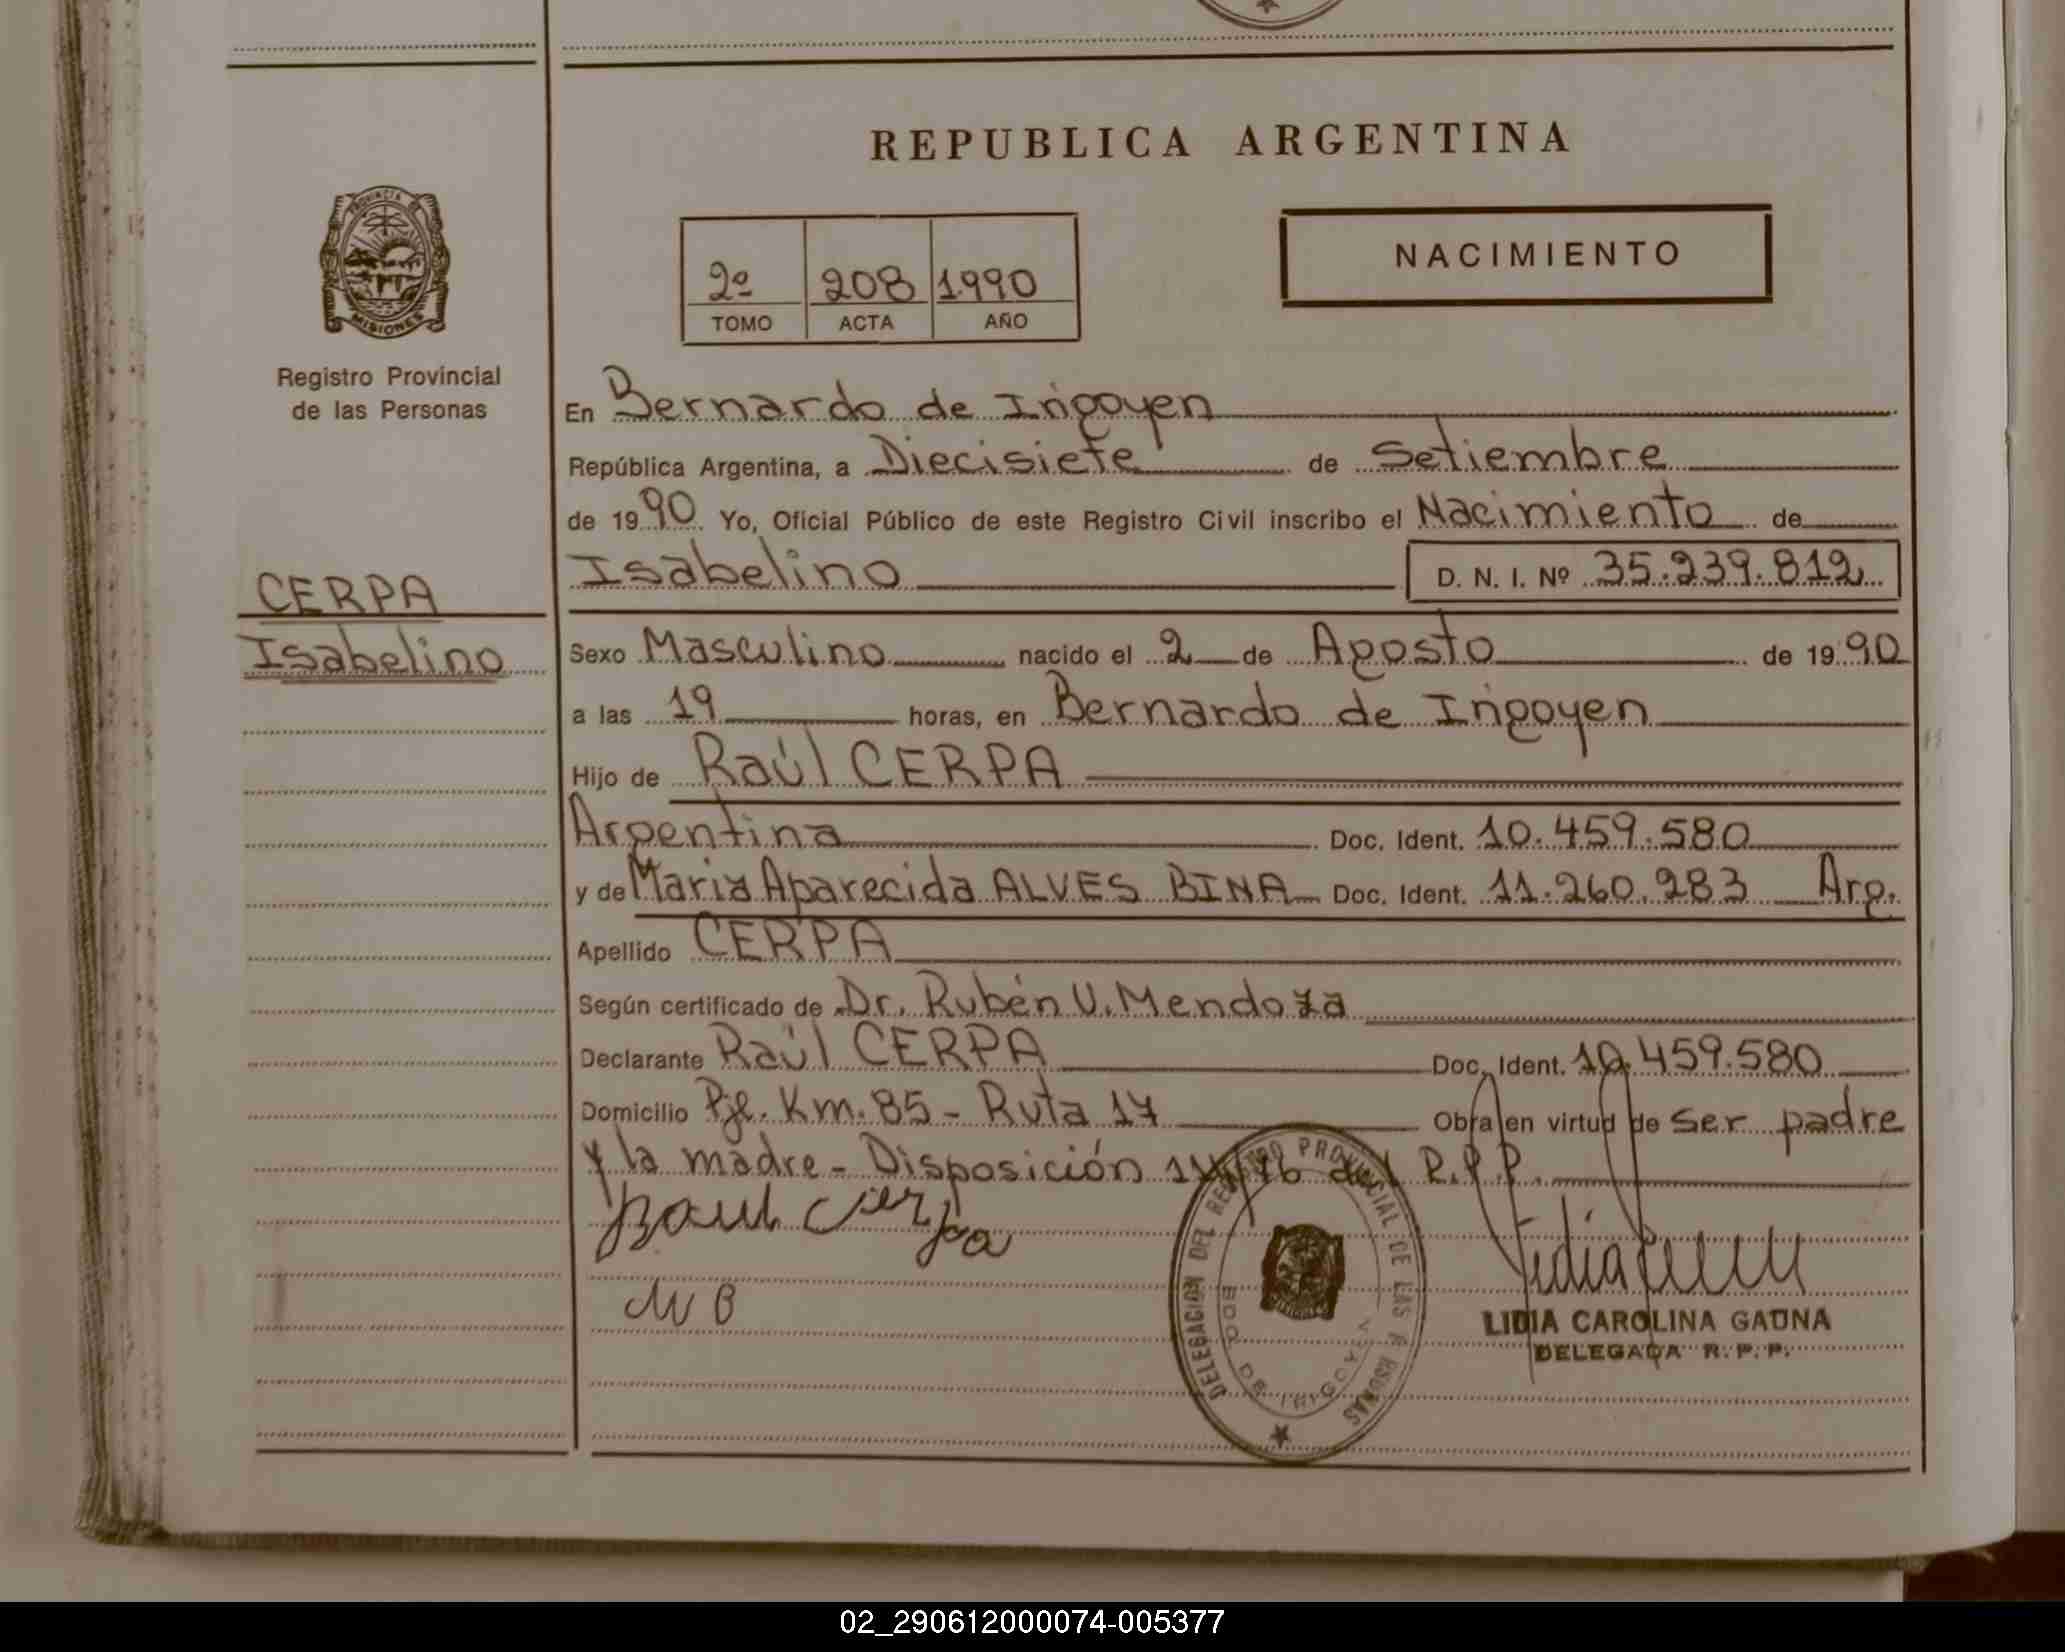 REPUBLICA ARGENTINA
NACIMIENTO
2º 208 1990
TOMO ACTA AÑO
PROVINCIA DE
MISIONES
Registro Provincial
de las Personas
CERPA
Isabelino
En Bernardo de Irigoyen
República Argentina, a Diecisiete de Setiembre
de 1990 Yo, Oficial Público de este Registro Civil inscribo el Nacimiento de
Isabelino D. N. I. Nº 35.239.812
Sexo Masculino nacido el 2 de Agosto de 1990
a las 19 horas, en Bernardo de Irigoyen
Hijo de Raúl CERPA
Argentina Doc. Ident. 10.459.580
y de Maria Aparecida ALVES BINA Doc. Ident. 11.260.283 Arg.
Apellido CERPA
Según certificado de Dr. Rubén U. Mendoza
Declarante Raúl CERPA Doc. Ident. 10.459.580
Domicilio Pje. Km. 85 - Ruta 17 Obra en virtud de ser padre
y la madre - Disposición del R.P.P.
Raul Cerpa
DELEGACION DEL REGISTRO PROVINCIAL DE LAS PERSONAS
BDO. DE IRIGOYEN
LIDIA CAROLINA GAUNA
DELEGADA R. P. P.
02_290612000074-005377